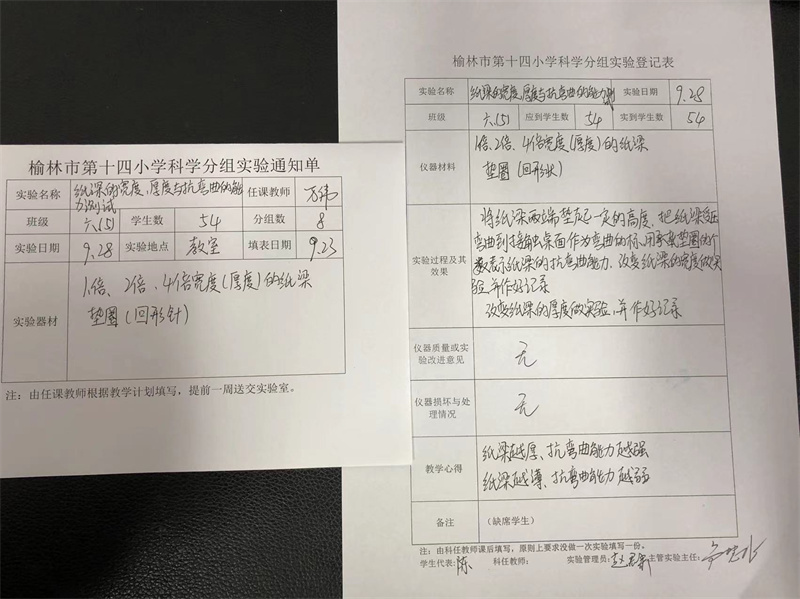 榆林市第十四小学科学分组实验通知单
实验名称 纸梁的宽度,厚度与抗弯曲的能力测试 任课教师
班级 六(5) 学生数 54 分组数 8
实验日期 9.28 实验地点 教室 填表日期 9.23
实验器材
1倍、2倍、4倍宽度(厚度)的纸梁
垫圈(回形针)
注:由任课教师根据教学计划填写,提前一周送交实验室。
榆林市第十四小学科学分组实验登记表
实验名称 纸梁的宽度,厚度与抗弯曲的能力测 实验日期 9.28
班级 六(5) 应到学生数 54 实到学生数 54
仪器材料
1倍、2倍、4倍宽度(厚度)的纸梁
垫圈(回形状)
实验过程及其效果
将纸梁两端垫起一定的高度,把纸梁受压
弯曲到接触桌面作为弯曲的标,用垫圈的个
数表示纸梁的抗弯曲能力.改变纸梁的宽度做实
验,并作好记录
改变纸梁的厚度做实验,并作好记录
仪器质量或实验改进意见 无
仪器损坏与处理情况 无
教学心得
纸梁越厚、抗弯曲能力越强
纸梁越薄、抗弯曲能力越弱
备注 (缺席学生)
注:由科任教师课后填写,原则上要求没做一次实验填写一份。
学生代表: 陈 科任教师: 实验管理员: 主管实验主任: